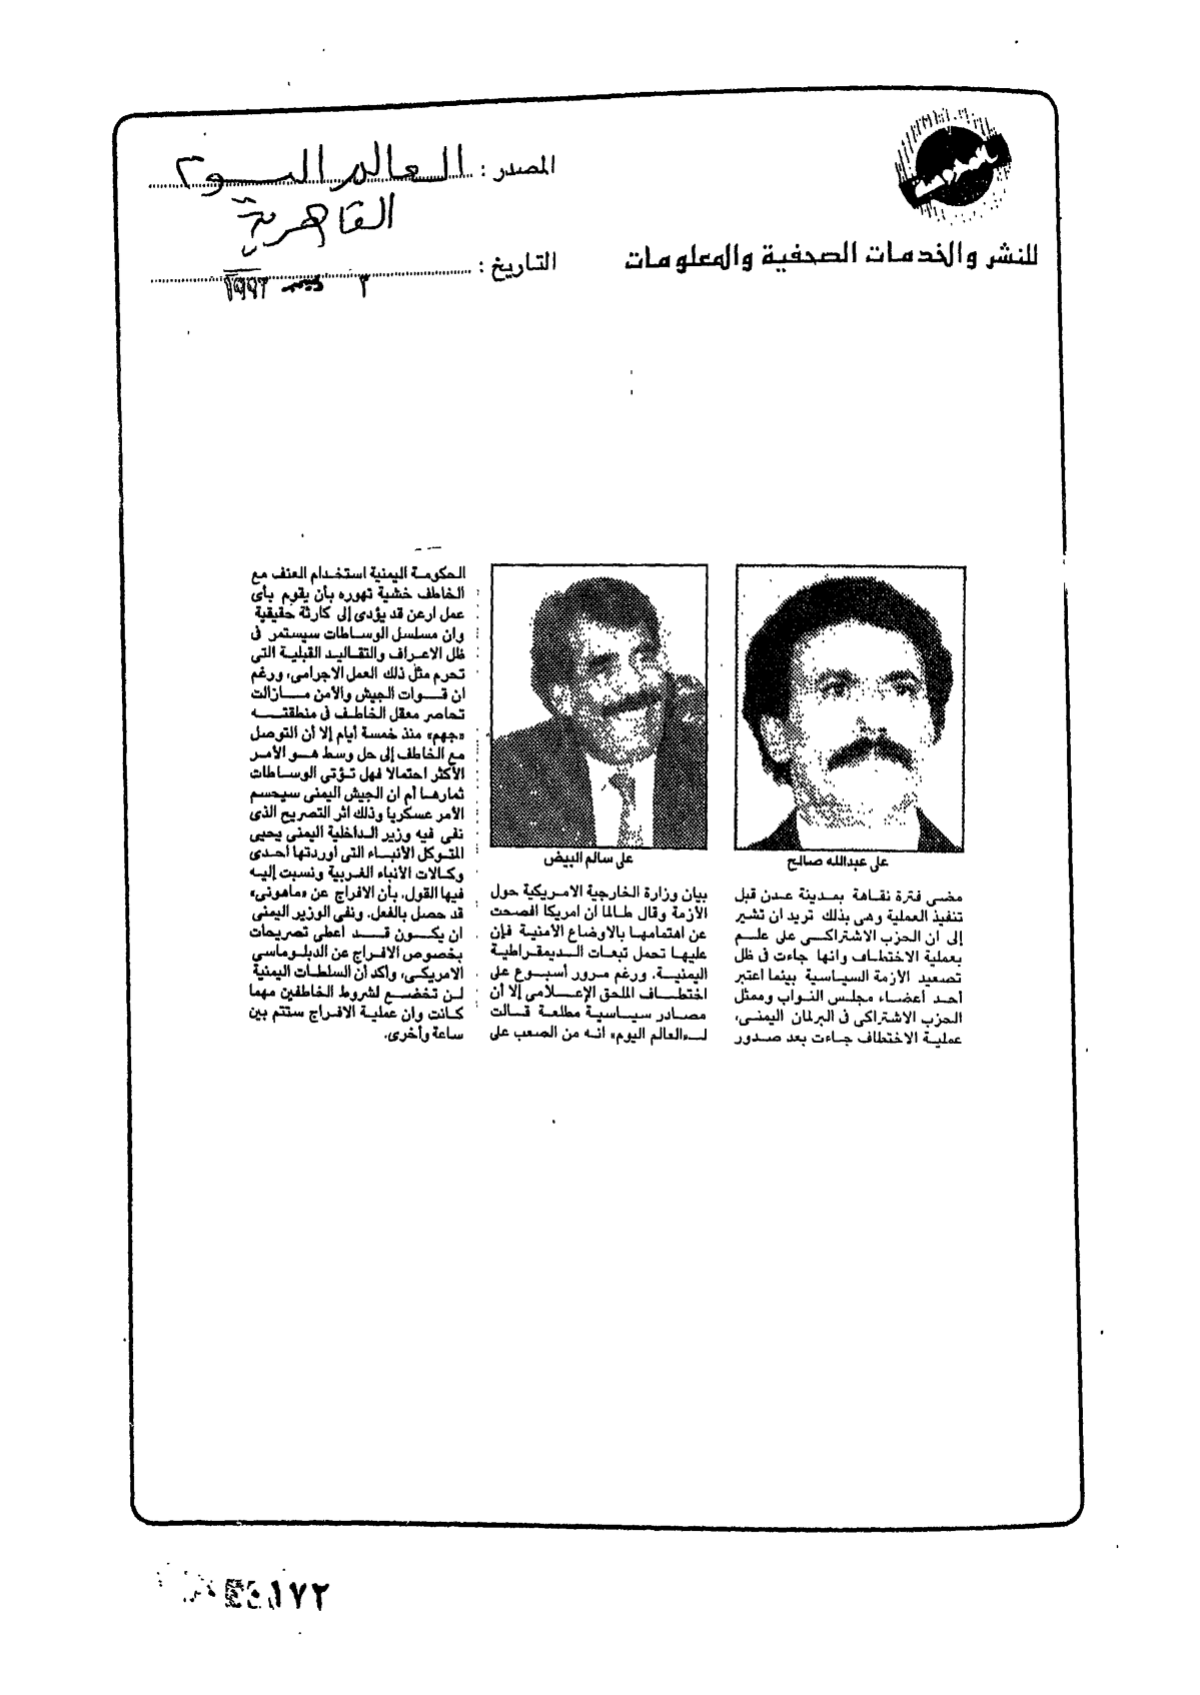 المصدر : العالم اليوم
القاهرية
للنشر والخدمات الصحفية والمعلومات
التاريخ : ٣ ديسمبر ١٩٩٣
على عبدالله صالح
على سالم البيض
مضى فترة نقاهة بمدينة عدن قبل
تنفيذ العملية وهى بذلك تريد ان تشير
إلى أن الحزب الاشتراكى على علم
بعملية الاختطاف وانها جاءت فى ظل
تصعيد الأزمة السياسية بينما اعتبر
أحد أعضاء مجلس النواب وممثل
الحزب الاشتراكى فى البرلمان اليمنى،
عملية الاختطاف جاءت بعد صدور
بيان وزارة الخارجية الامريكية حول
الأزمة وقال طالما ان امريكا افصحت
عن اهتمامها بالاوضاع الأمنية فإن
عليها تحمل تبعات الديمقراطية
اليمنية. ورغم مرور أسبوع على
اختطاف الملحق الإعلامى إلا أن
مصادر سياسية مطلعة قالت
لـ«العالم اليوم» انه من الصعب على
الحكومة اليمنية استخدام العنف مع
الخاطف خشية تهوره بأن يقوم بأى
عمل ارعن قد يؤدى إلى كارثة حقيقية
وان مسلسل الوساطات سيستمر فى
ظل الاعراف والتقاليد القبلية التى
تحرم مثل ذلك العمل الاجرامى، ورغم
ان قوات الجيش والأمن مازالت
تحاصر معقل الخاطف فى منطقته
«جهم» منذ خمسة أيام إلا أن التوصل
مع الخاطف إلى حل وسط هو الأمر
الأكثر احتمالا فهل تؤتى الوساطات
ثمارها أم ان الجيش اليمنى سيحسم
الأمر عسكريا وذلك اثر التصريح الذى
نفى فيه وزير الداخلية اليمنى يحيى
المتوكل الأنباء التى أوردتها أحدى
وكالات الأنباء الغربية ونسبت إليه
فيها القول، بأن الافراج عن «ماهونى»
قد حصل بالفعل. ونفى الوزير اليمنى
ان يكون قد اعطى تصريحات
بخصوص الافراج عن الدبلوماسى
الامريكى، وأكد أن السلطات اليمنية
لن تخضع لشروط الخاطفين مهما
كانت وان عملية الافراج ستتم بين
ساعة وأخرى.
١٧٢